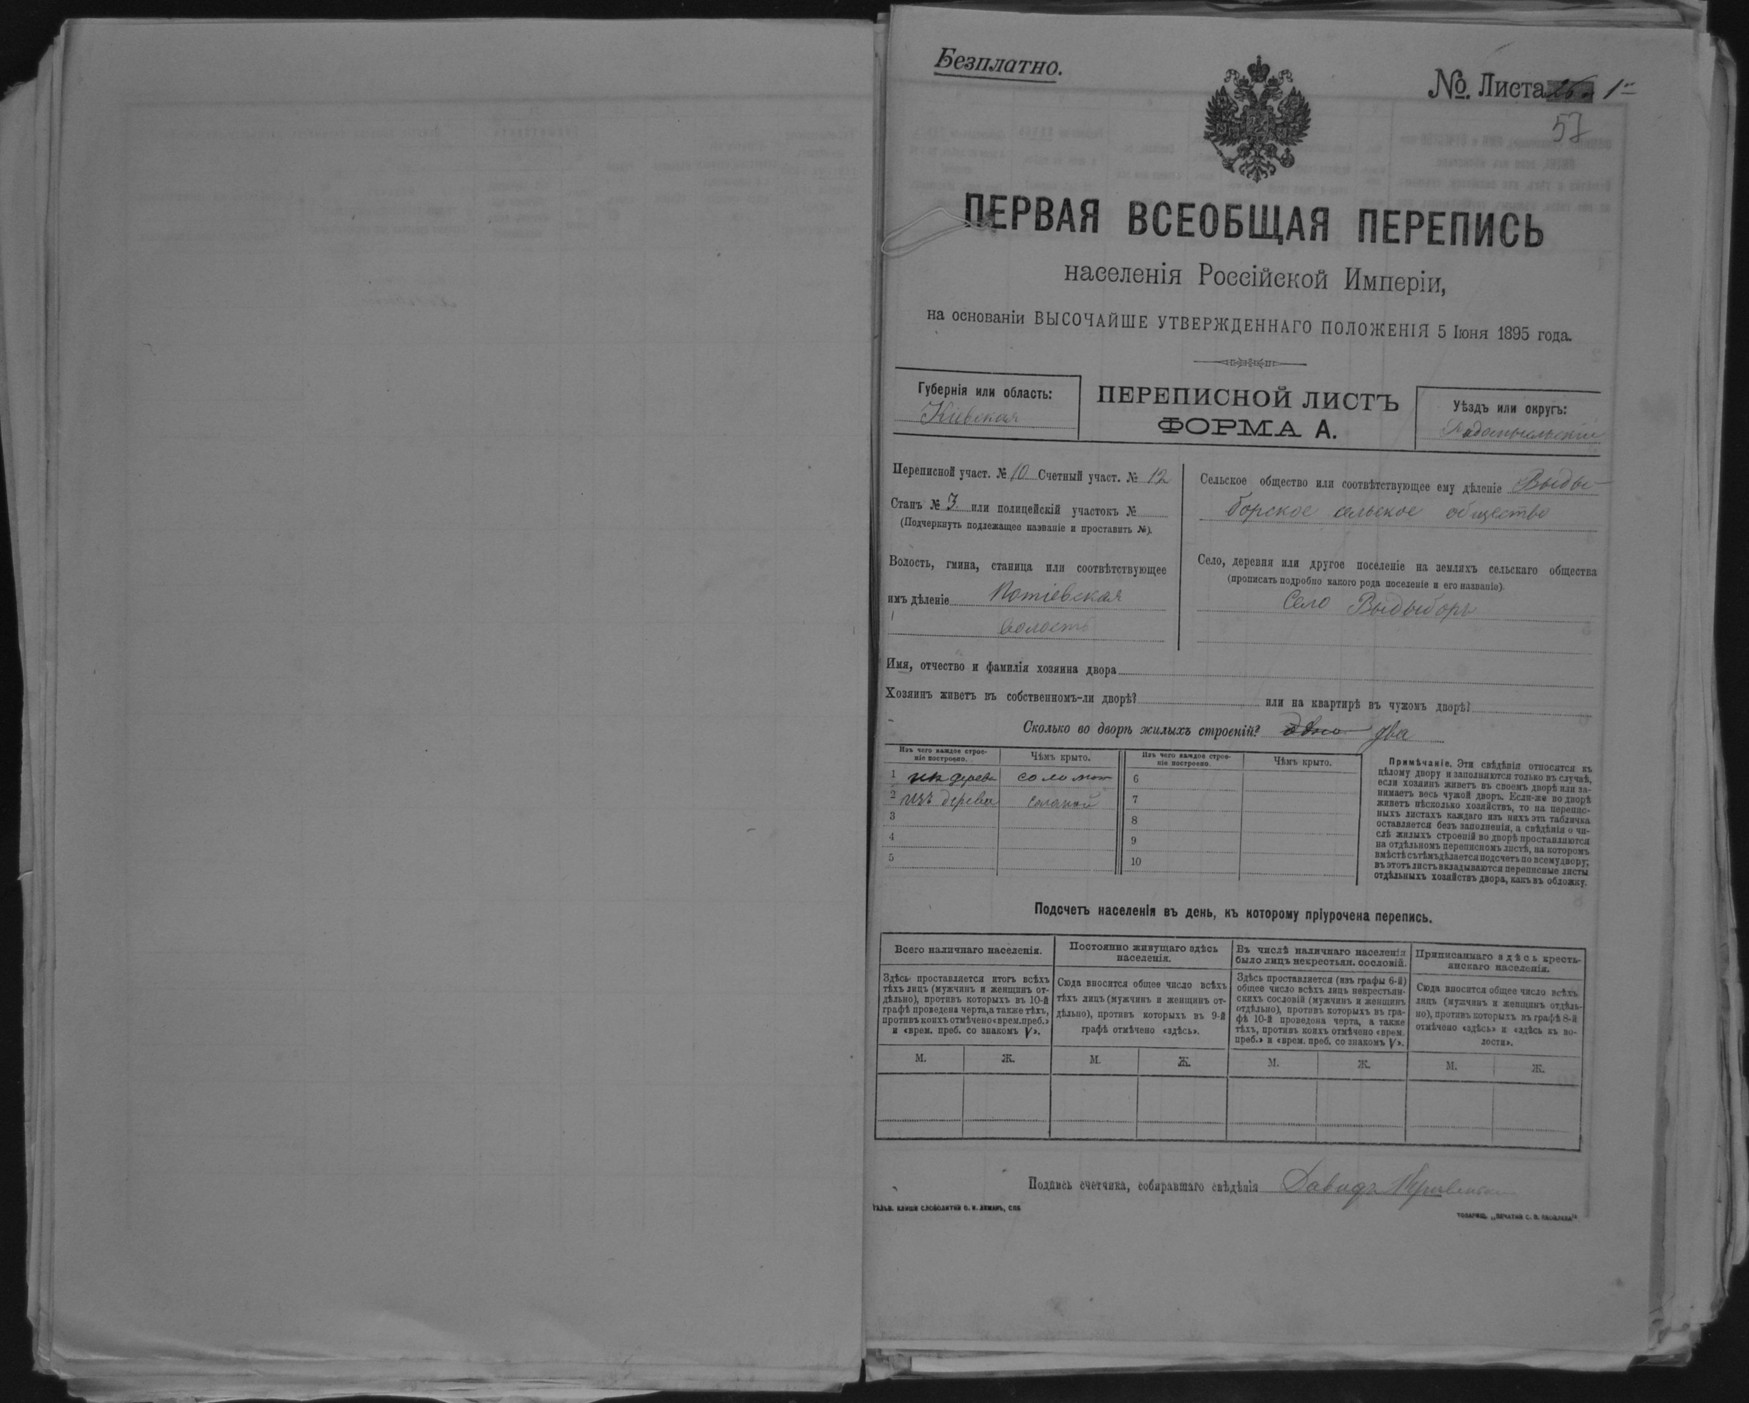 Безплатно.
№. Листа 1
57
ПЕРВАЯ ВСЕОБЩАЯ ПЕРЕПИСЬ
населенія Россійской Имперіи,
на основаніи ВЫСОЧАЙШЕ УТВЕРЖДЕННАГО ПОЛОЖЕНІЯ 5 Іюня 1895 года.
Губернія или область:
Кіевская
ПЕРЕПИСНОЙ ЛИСТЪ
ФОРМА А.
Уѣздъ или округъ:
Радомысльскій
Переписной участ. № 10 Счетный участ. № 12
Станъ № 3. или полицейскій участокъ №
(Подчеркнуть подлежащее названіе и проставить №).
Волость, гмина, станица или соотвѣтствующее
имъ дѣленіе Потіевская
волость
Сельское общество или соотвѣтствующее ему дѣленіе Выды-
борское сельское общество
Село, деревня или другое поселеніе на земляхъ сельскаго общества
(прописать подробно какого рода поселеніе и его названіе)
Село Выдыборъ
Имя, отчество и фамилія хозяина двора
Хозяинъ живетъ въ собственномъ-ли дворѣ? или на квартирѣ въ чужомъ дворѣ?
Сколько во дворѣ жилыхъ строеній? одно два
Изъ чего каждое строе-
ніе построено.
Чѣмъ крыто.
Изъ чего каждое строе-
ніе построено.
Чѣмъ крыто.
1 6
2 изъ дерева соломой 7
3 8
4 9
5 10
Примѣчаніе. Эти свѣдѣнія относятся къ
цѣлому двору и заполняются только въ случаѣ,
если хозяинъ живетъ въ своемъ дворѣ или за-
нимаетъ весь чужой дворъ. Если-же во дворѣ
живетъ нѣсколько хозяйствъ, то на перепис-
ныхъ листахъ каждаго изъ нихъ эта табличка
оставляется безъ заполненія, а свѣдѣнія о чи-
слѣ жилыхъ строеній во дворѣ проставляются
на отдѣльномъ переписномъ листѣ, на которомъ
вмѣстѣ съ тѣмъ дѣлается подсчетъ по всему двору;
въ этотъ листъ вкладываются переписные листы
отдѣльныхъ хозяйствъ двора, какъ въ обложку.
Подсчетъ населенія въ день, къ которому пріурочена перепись.
Всего наличнаго населенія.
Здѣсь проставляется итогъ всѣхъ
тѣхъ лицъ (мужчинъ и женщинъ от-
дѣльно), противъ которыхъ въ 10-й
графѣ проведена черта, а также тѣхъ,
противъ коихъ отмѣчено «врем. преб.»
и «врем. преб. со знакомъ V».
Постоянно живущаго здѣсь
населенія.
Сюда вносится общее число всѣхъ
тѣхъ лицъ (мужчинъ и женщинъ от-
дѣльно), противъ которыхъ въ 9-й
графѣ отмѣчено «здѣсь».
Въ числѣ наличнаго населенія
было лицъ некрестьян. сословій.
Здѣсь проставляется (изъ графы 6-й)
общее число всѣхъ лицъ некрестьян-
скихъ сословій (мужчинъ и женщинъ
отдѣльно), противъ которыхъ въ гра-
фѣ 10-й проведена черта, а также
тѣхъ, противъ коихъ отмѣчено «врем.
преб.» и «врем. преб. со знакомъ V».
Приписаннаго здѣсь кресть-
янскаго населенія.
Сюда вносится общее число всѣхъ
лицъ (мужчинъ и женщинъ отдѣль-
но), противъ которыхъ въ графѣ 8-й
отмѣчено «здѣсь» и «здѣсь въ во-
лости».
М. Ж. М. Ж. М. Ж. М. Ж.
Подпись счетчика, собиравшаго свѣдѣнія Давидъ